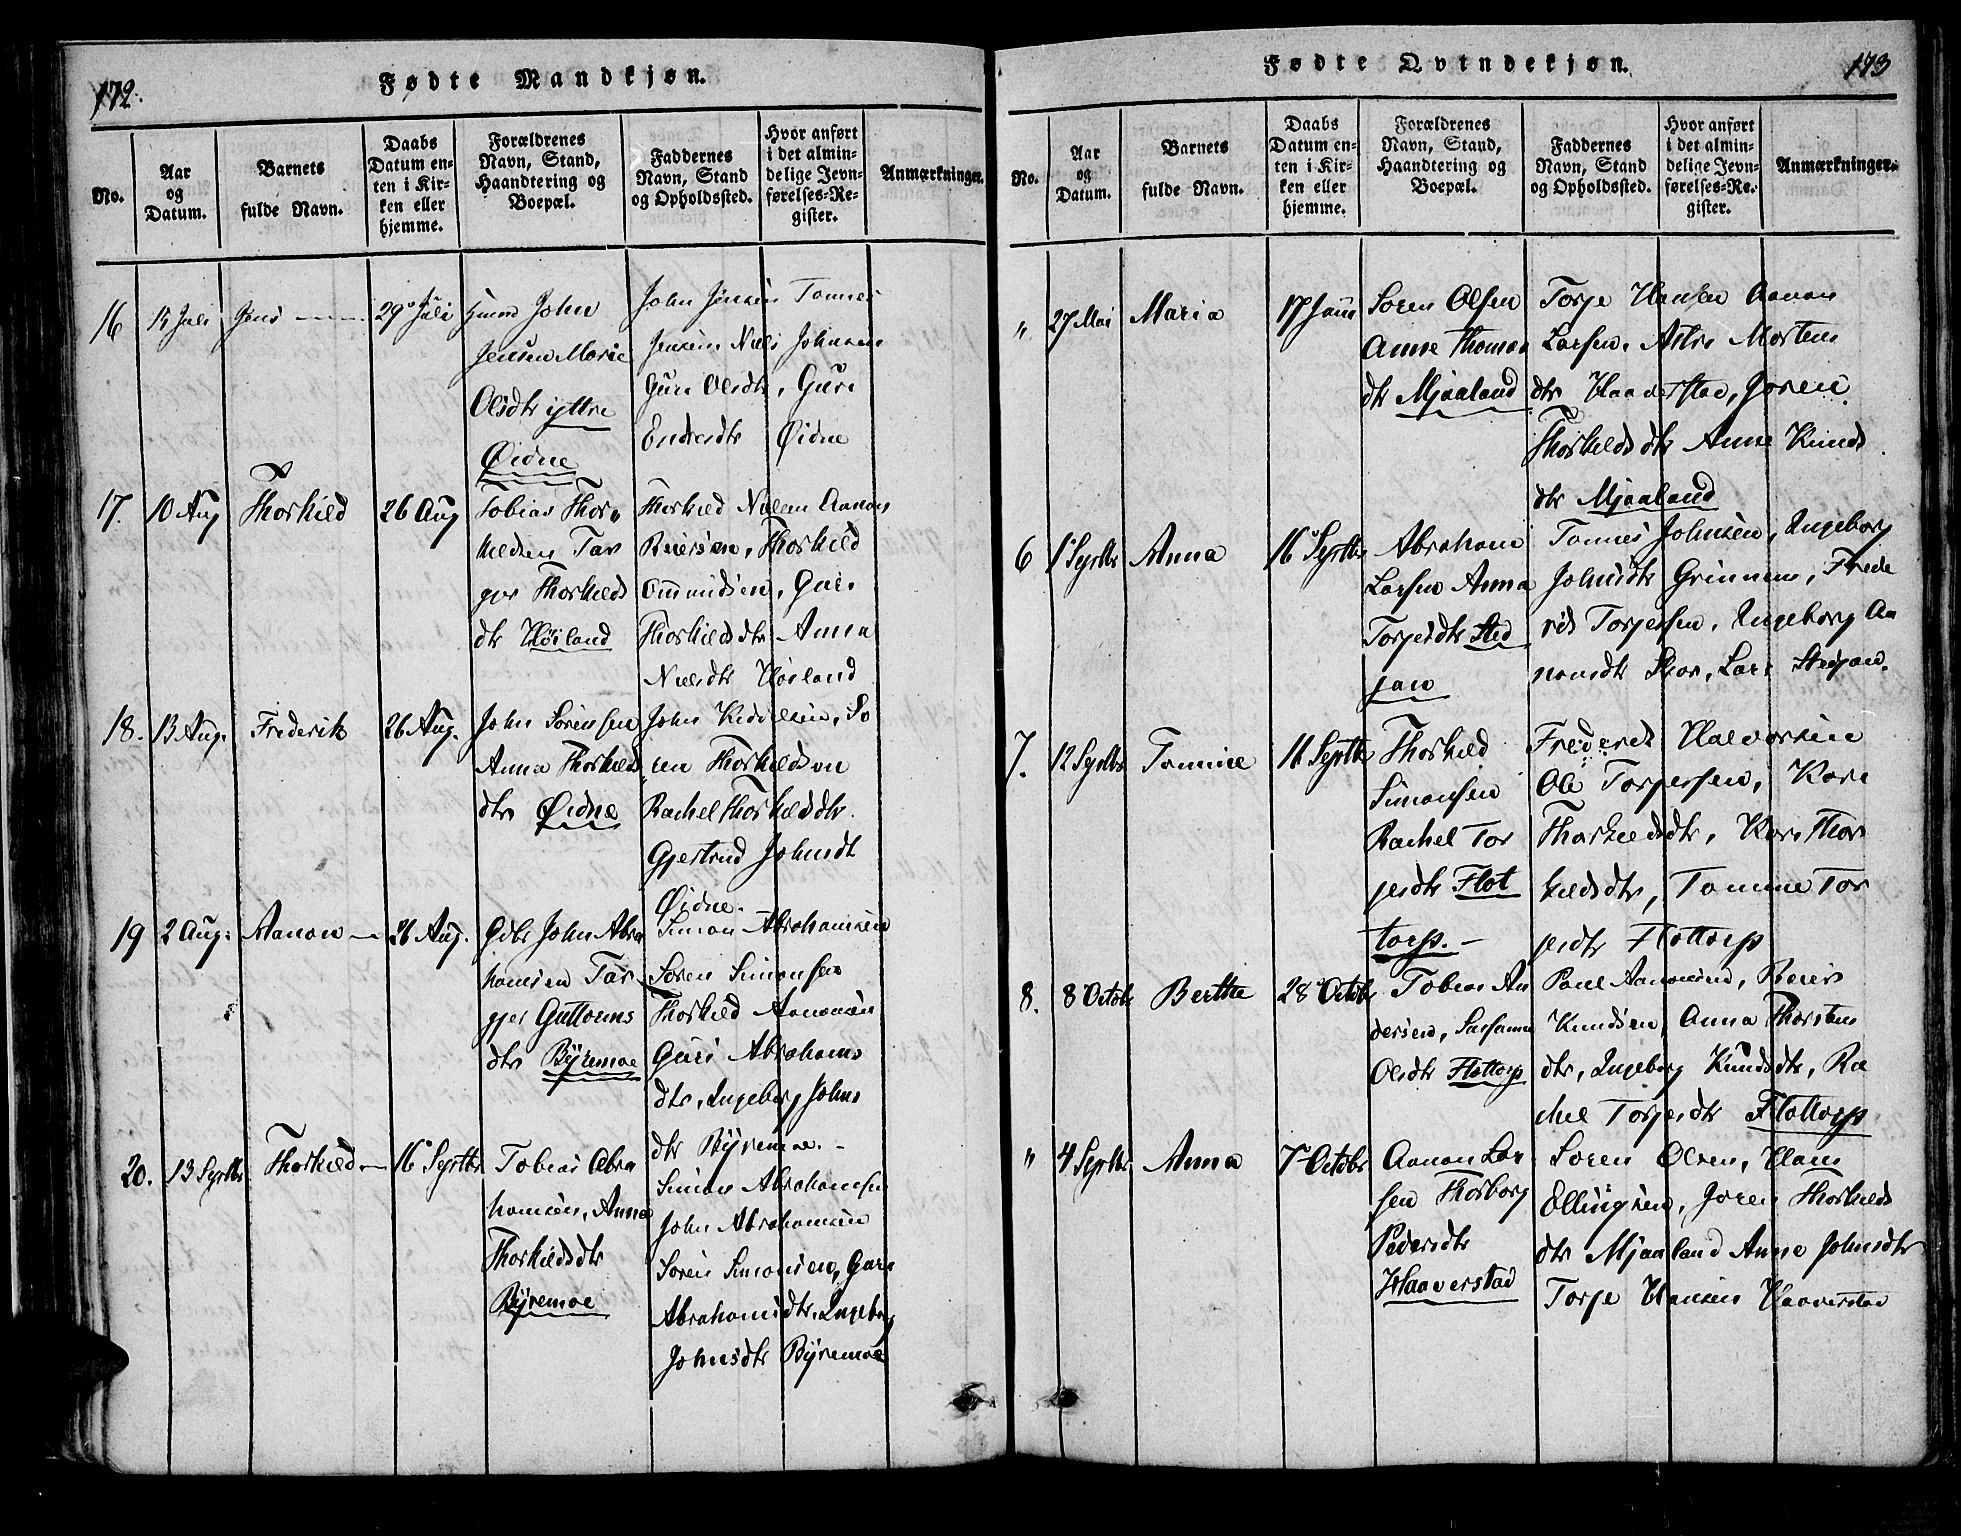 172.
Fødte Mandkjøn.
No.
Aar
og
Datum.
Barnets
fulde Navn.
Daabs
Datum en-
ten i Kir-
ken eller
hjemme.
Forældrenes
Navn, Stand,
Haandtering og
Boepæl.
Faddernes
Navn, Stand
og Opholdssted.
Hvor anført
i det almin-
delige Jevn-
førelses-Re-
gister.
Anmærkninger.
16
15 Juli
Jens
29 Juli
John
Jensen Marie
Olsdtr yttre
Øidne
John Jensen Tønnes
Jensen Niels Johnsen
Guri Olsdtr, Guri
Endresdtr Øidne
17.
10 Aug
Thorkild
26 Aug
Tobias Thor
kildsen Tar
gjer Thorkilds
dtr Høiland
Thorkild Nielsen Aanon
Reiersen, Thorkild
Ommundsen, Guri
Thorkildsdtr Anna
Nielsdtr Høiland
18.
13 Aug.
Frederik
26 Aug.
John Sørensen
Anna Thorkilds
dtr Øidne
John Kiddelsen, Sø
ren Thorkildsen
Rachel Thorkildsdtr.
Gjertrud Johnsdt
Øidne.
19
2 Aug:
Aanon
26 Aug.
Gdbr John Abra
hamsen Tar
gjer Guttorms
dtr Byremoe
Simon Abrahamsen
Søren Simonsen
Thorkild Aanonsen
Guri Abrahams
dtr, Ingeborg Johns
dtr Byremoe.
20.
13 Sept̄br
Thorkild
16 Sept̄br
Tobias Abra
hamsen, Anna
Thorkildsdtr
Byremoe
Simon Abrahamsen
John Abrahamsen
Søren Simonsen, Guri
Abrahamsdtr, Ingeborg
Johnsdtr Byremoe
173
Fødte Qvindekjøn.
No.
Aar
og
Datum.
Barnets
fulde Navn.
Daabs
Datum en-
ten i Kir-
ken eller
hjemme.
Forældrenes
Navn, Stand,
Haandtering og
Boepæl.
Faddernes
Navn, Stand
og Opholdssted.
Hvor anført
i det almin-
delige Jevn-
førelses-Re-
gister.
Anmærkninger.
"
27 Mai
Maria
17 Juni
Søren Olsen
Anne Thomas
dtr Mjaaland
Torje Hansen Aanon
Larsen, Astri Mortens
dtr Haaverstad, Joren
Thorkildsdtr Anne Knuds
dtr Mjaaland
6
1 Septbr
Anna
16 Septbr
Abraham
Larsen Anna
Torjesdtr Sted
jan
Tønnes Johnsen, Ingeborg
Johnsdtr Grimnes, Frede
rik Torjersen, Ingeborg Aa
nonsdtr Skor, Lars Stedjan.
7.
12 Septbr
Tomine
16 Septbr
Thorkild
Simonsen
Rachel Tor
jesdtr Flot
torp.
Frederik Halvorsen
Ole Torjersen, Kari
Thorkildsdtr, Karen Thor
kildsdtr, Tomine Tor
jesdtr Flottorp
8.
8 Octobr
Berthe
28 Octobr
Tobias An
dersen, Susanne
Olsdtr Flottorp
Poul Aanonsen, Reier
Knudsen, Anna Thorstens
dtr, Ingeborg Knudsdtr, Ra
chel Torjesdtr Flottorp
"
4 Septbr
Anna
7 Octobr
Aanon Lar
sen Thorborg
Pedersdtr
Haaverstad
Søren Olsen, Hans
Ellingsen, Joren Thorkilds
dtr Mjaaland Anne Johnsdtr
Torje Hansen Haaverstad